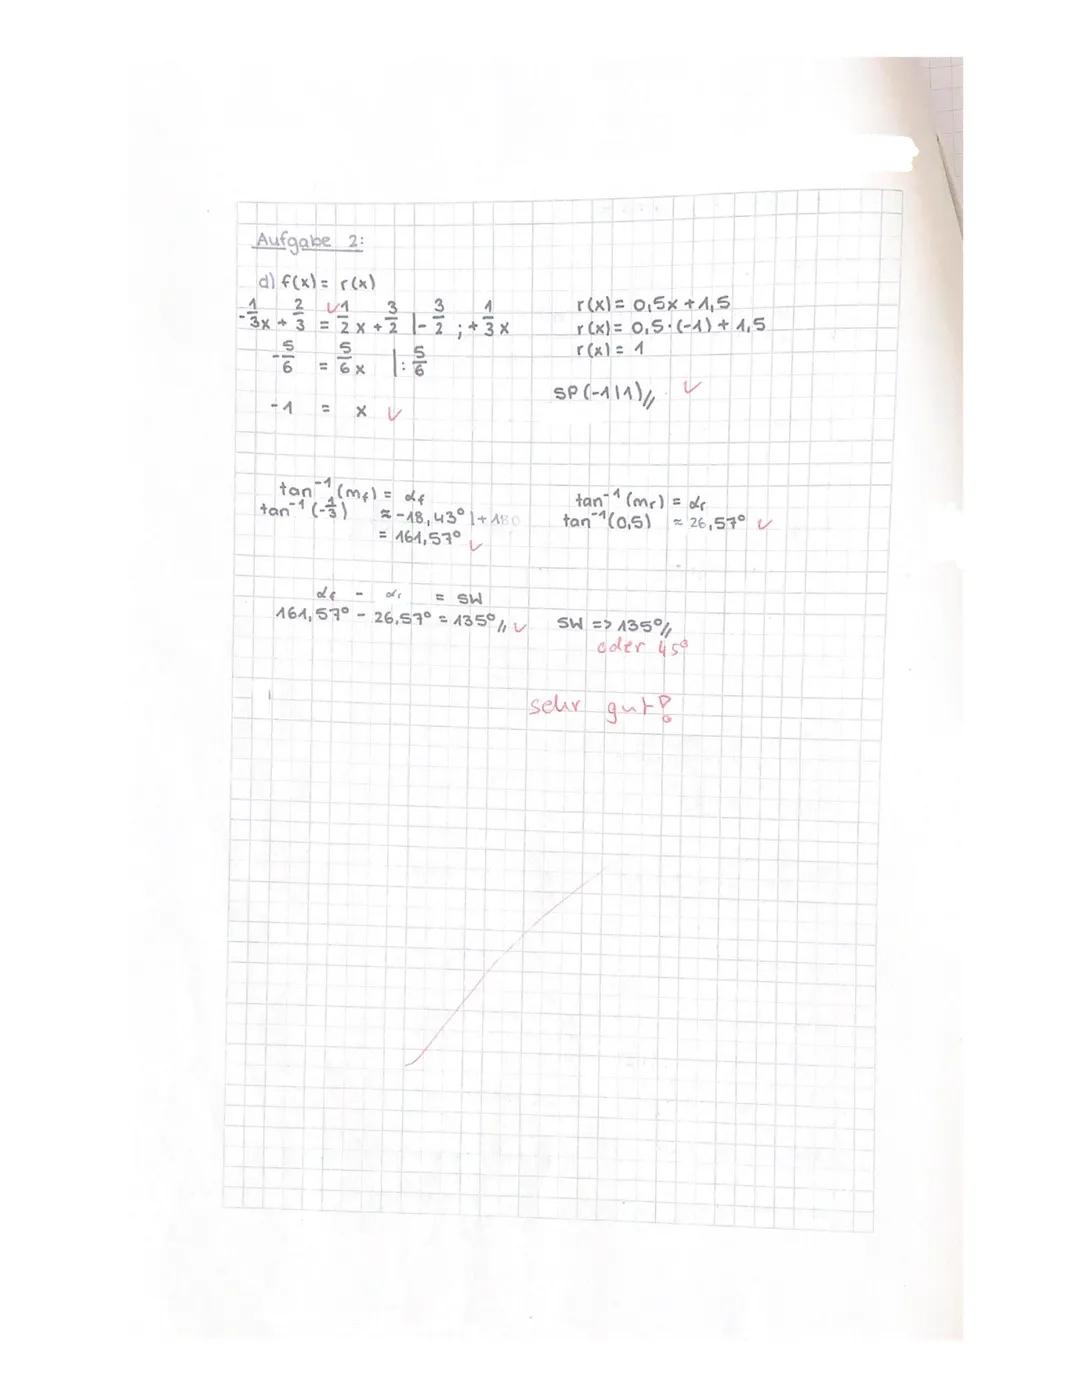 Aufgabe 2:
d) f(x) = r(x)
-1/3x + 2/3 = 1/2x + 3/2 |- 3/2 ; + 1/3x
-5/6 = 5/6x |: 5/6
-1 = x
r(x) = 0,5x + 1,5
r(x) = 0,5·(-1) + 1,5
r(x) = 1
SP (-1|1)//
tan⁻¹(mf) = αf
tan⁻¹(-1/3) ≈ -18,43° |+180
= 161,57°
tan⁻¹(mr) = αr
tan⁻¹(0,5) ≈ 26,57°
αf - αr = SW
161,57° - 26,57° = 135°//
SW => 135°//
oder 45°
sehr gut!